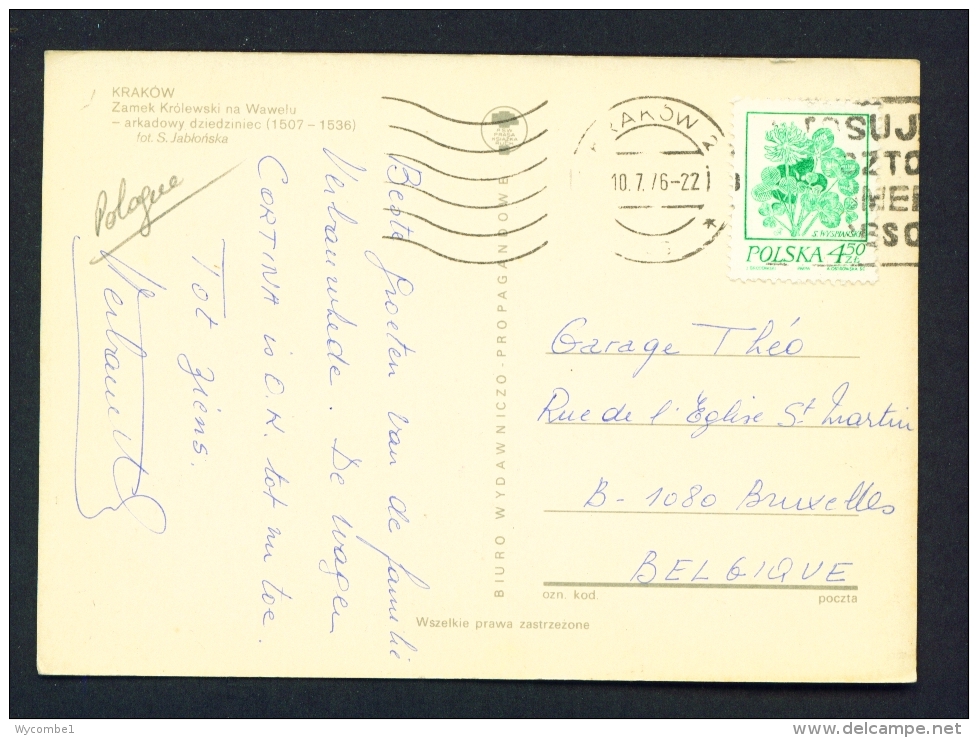 KRAKÓW
Zamek Królewski na Wawelu
– arkadowy dziedziniec (1507 – 1536)
fot. S. Jabłońska
Pologne
Beste Groeten van de familie
De wagen
CORTINA is O.K. tot nu toe.
Tot ziens.
BIURO WYDAWNICZO-PROPAGANDOWE
KRAKÓW
10.7.76-22
S. WYSPIAŃSKI
POLSKA 4,50 ZŁ
Garage Théo
Rue de l'Eglise St Martin
B-1080 Bruxelles
BELGIQUE
ozn. kod.
poczta
Wszelkie prawa zastrzeżone
Wycombe1
www.delcampe.net